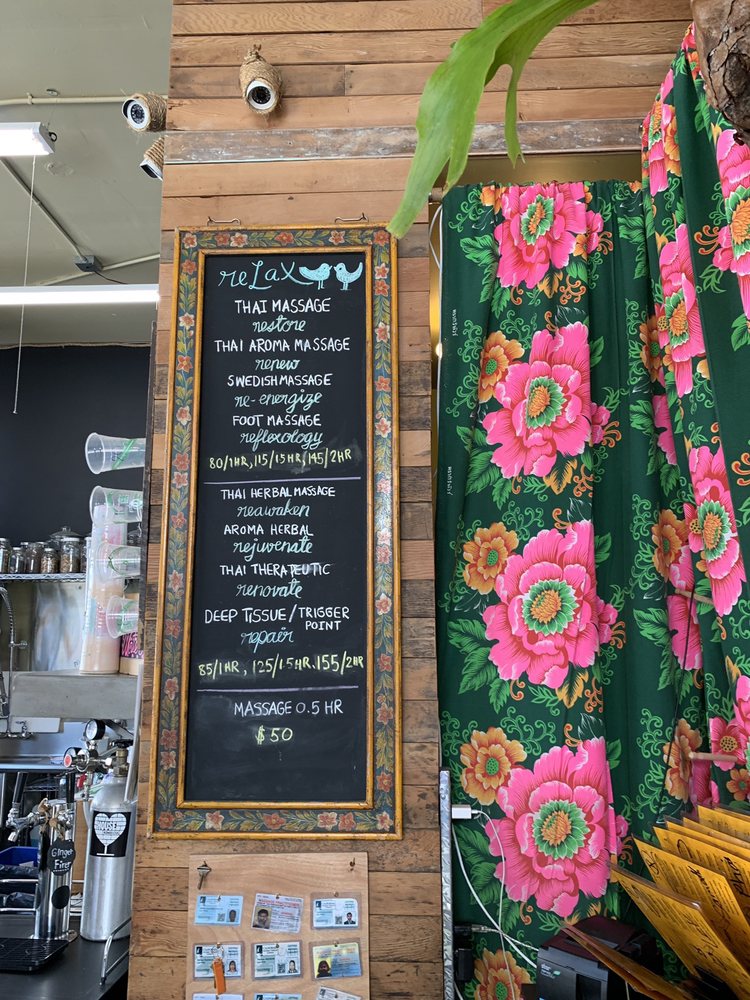 reLax
THAI MASSAGE
restore
THAI AROMA MASSAGE
renew
SWEDISH MASSAGE
re-energize
FOOT MASSAGE
reflexology
80/1HR, 115/1.5HR, 145/2HR
THAI HERBAL MASSAGE
reawaken
AROMA HERBAL
rejuvenate
THAI THERAPEUTIC
renovate
DEEP TISSUE / TRIGGER
POINT
repair
85/1HR, 125/1.5HR, 155/2HR
MASSAGE 0.5 HR
$50
Ginger